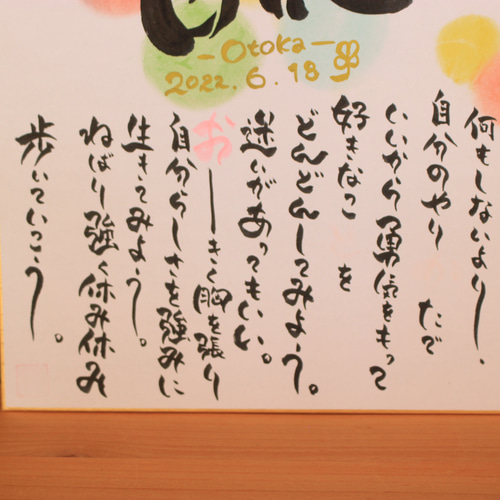 -Otoka-
2022.6.18
何もしないより、
自分のやり たで
いいから勇気をもって
好きなこ を
どんどんしてみよう。
迷いがあってもいい。
おーきく胸を張り
自分らしさを強みに
生きてみよう。
ねばり強く休み休み
歩いていこう。